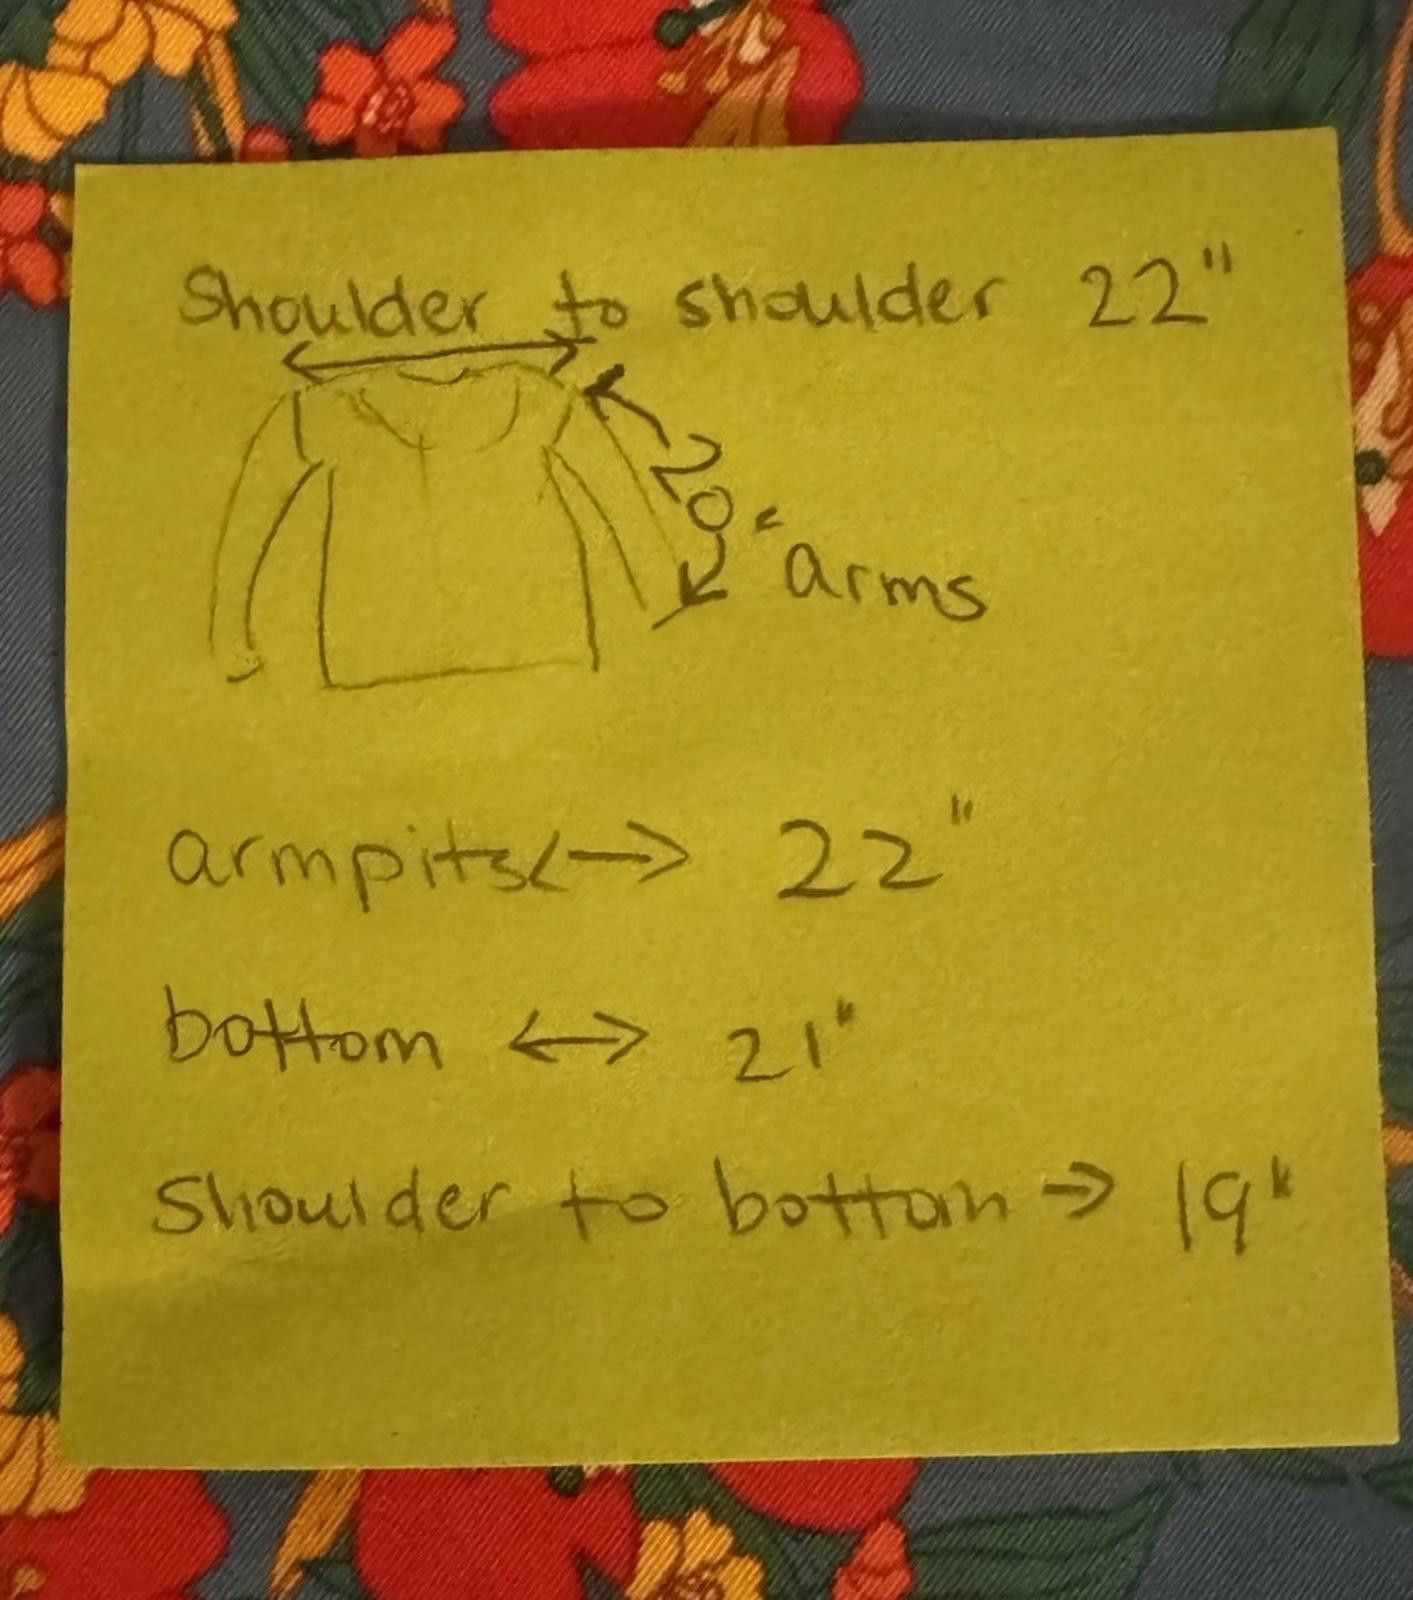 Shoulder to shoulder 22"
20"
arms
armpits <-> 22"
bottom <-> 21"
Shoulder to bottom -> 19"